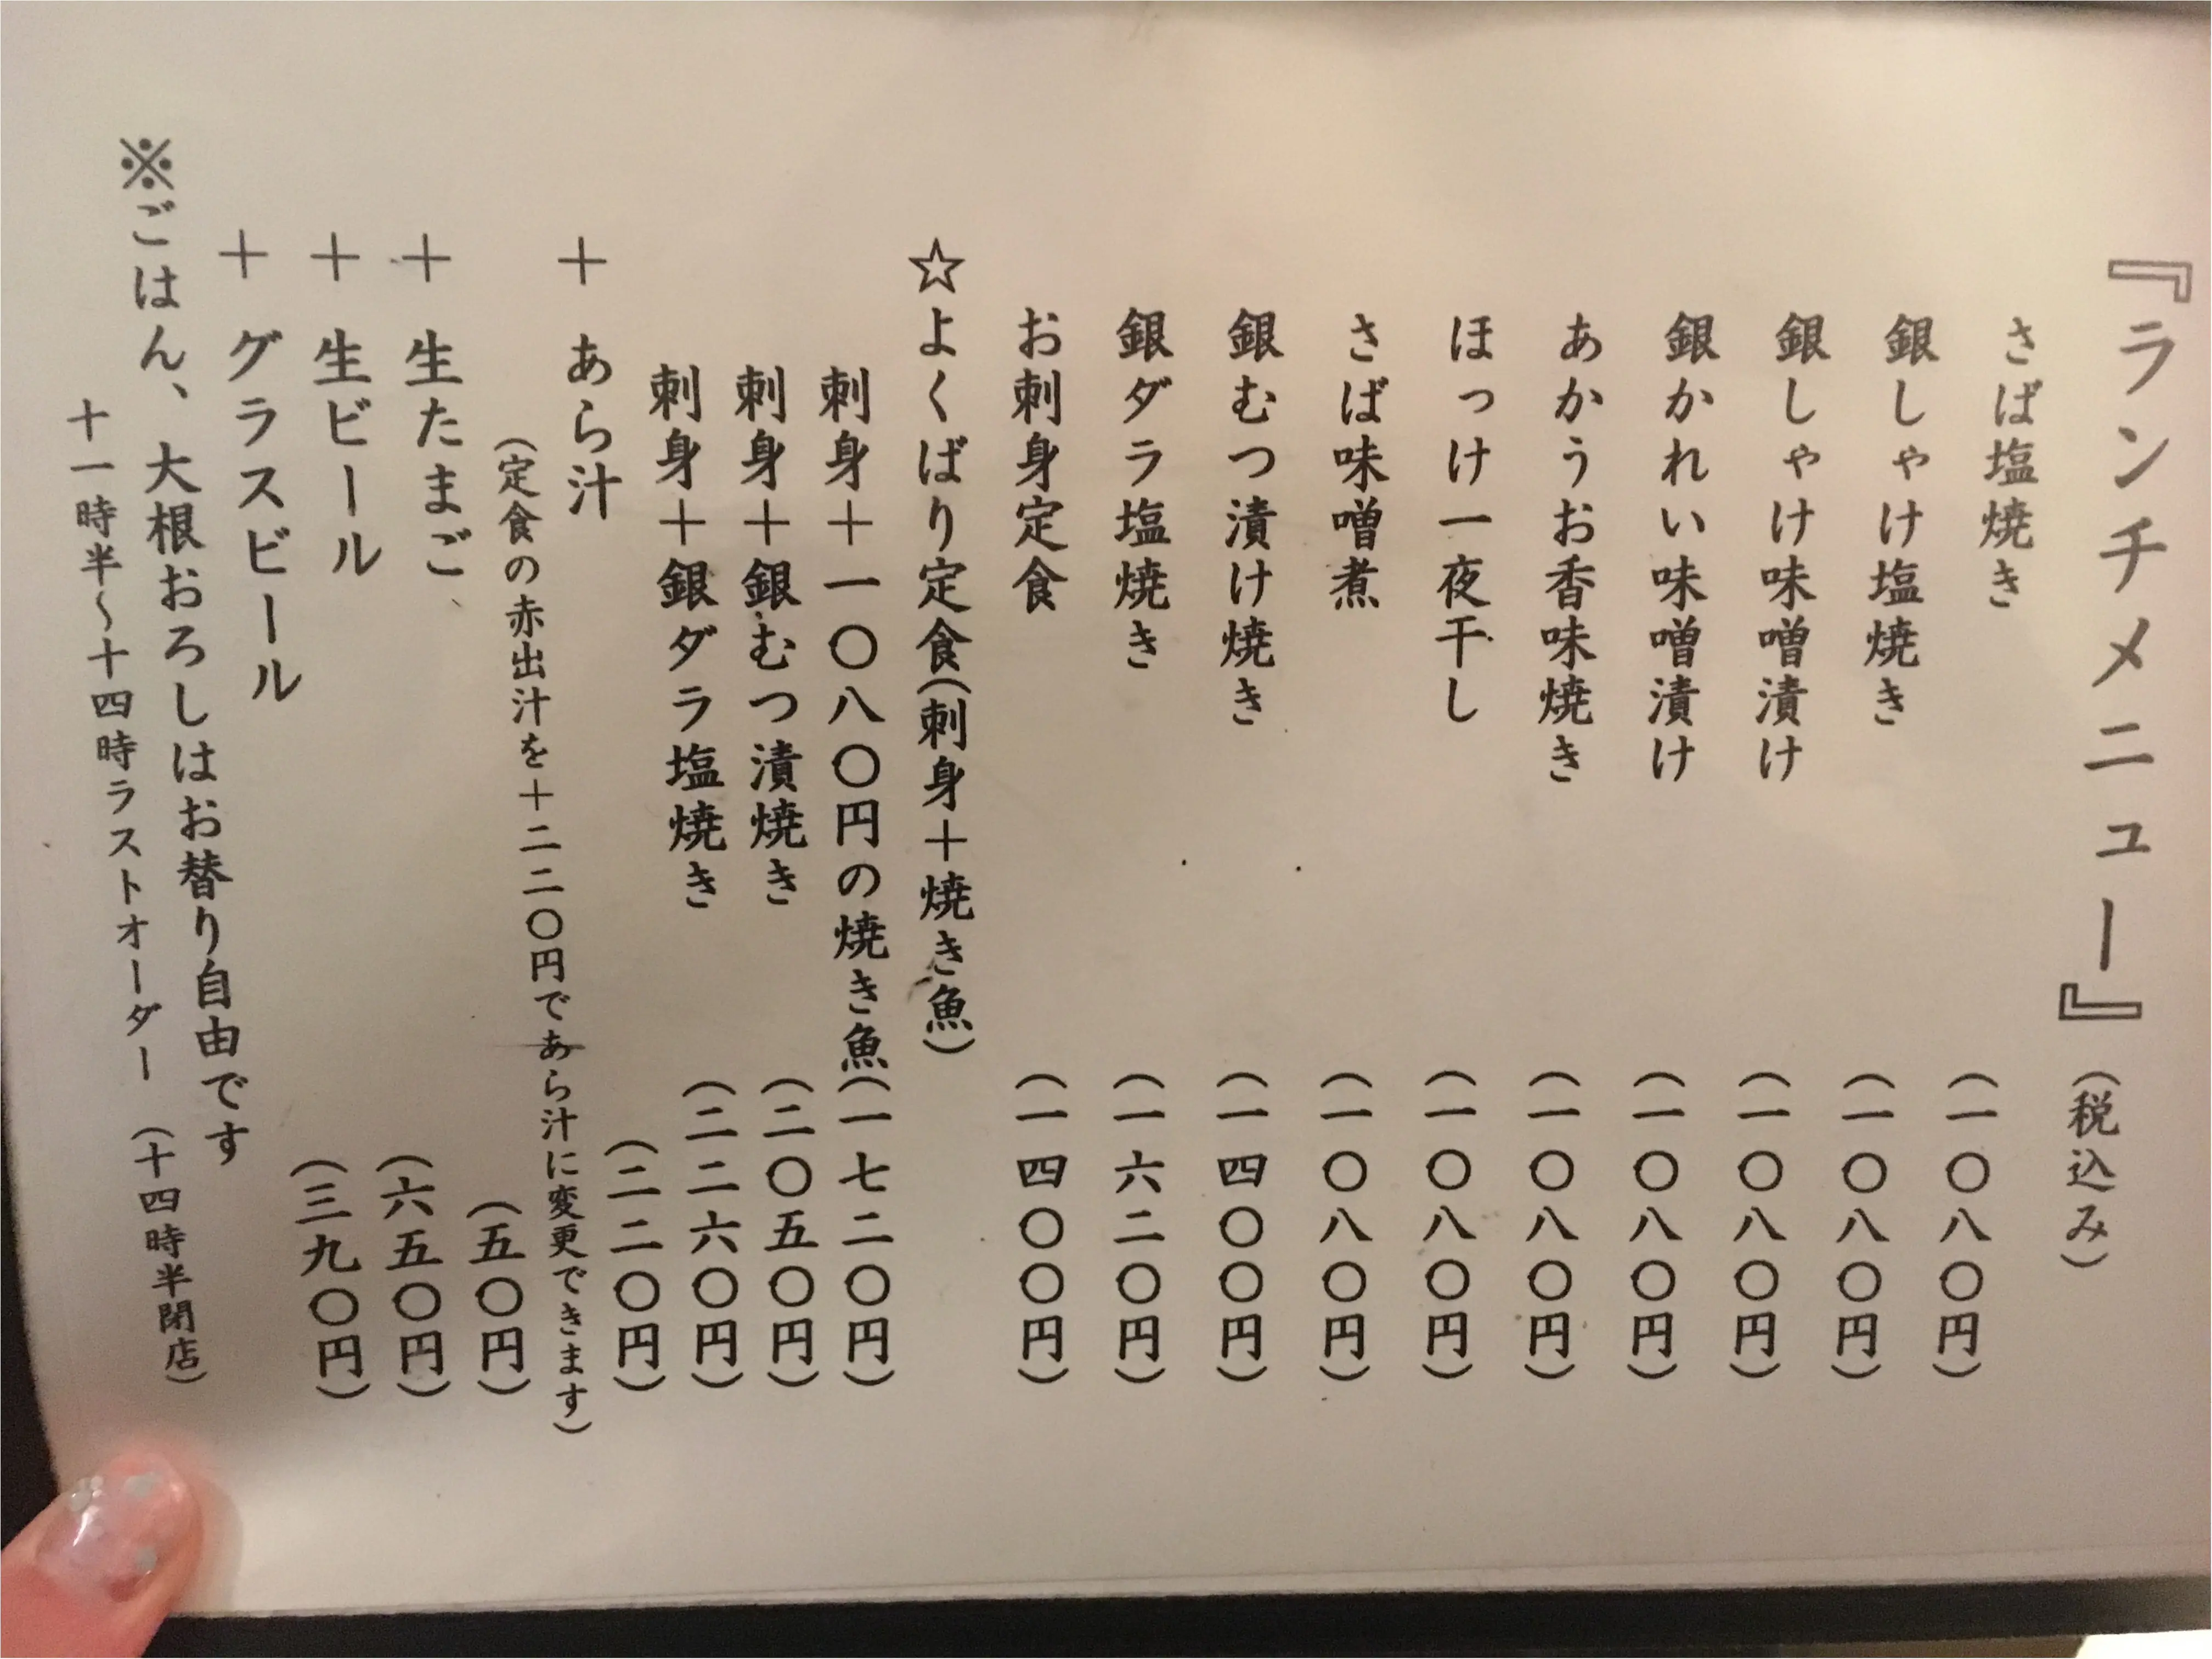 『ランチメニュー』（税込み）
さば塩焼き（一〇八〇円）
銀しゃけ塩焼き（一〇八〇円）
銀しゃけ味噌漬け（一〇八〇円）
銀かれい味噌漬け（一〇八〇円）
あかうお香味焼き（一〇八〇円）
ほっけ一夜干し（一〇八〇円）
さば味噌煮（一〇八〇円）
銀むつ漬け焼き（一四〇〇円）
銀ダラ塩焼き（一六二〇円）
お刺身定食（一四〇〇円）
☆よくばり定食（刺身＋焼き魚）
刺身＋一〇八〇円の焼き魚（一七二〇円）
刺身＋銀むつ漬焼き（二〇五〇円）
刺身＋銀ダラ塩焼き（二二六〇円）
＋ あら汁（二二〇円）
（定食の赤出汁を＋二二〇円であら汁に変更できます）
＋ 生たまご（五〇円）
＋ 生ビール（六五〇円）
＋ グラスビール（三九〇円）
※ごはん、大根おろしはお替り自由です
十一時半～十四時ラストオーダー（十四時半閉店）